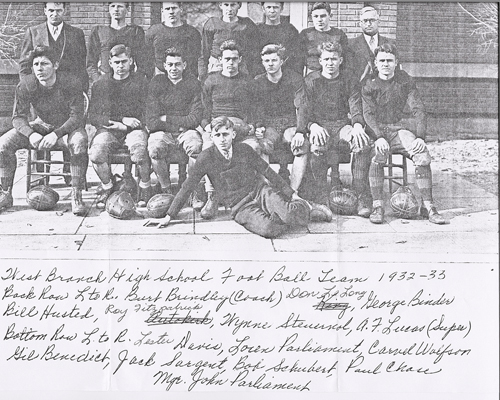 West Branch High School Foot Ball Team 1932-33
Back Row L to R. Burt Brindley (Coach) Don Long, George Binder
Bill Husted, Roy Fitzpatrick, Wynne Steuernol, A.F. Lucas (Super)
Bottom Row L to R. Lester Davis, Loren Parliament, Carvel Wolfson
Gil Benedict, Jack Sargent, Bob Schubert, Paul Chase
Mgr. John Parliament